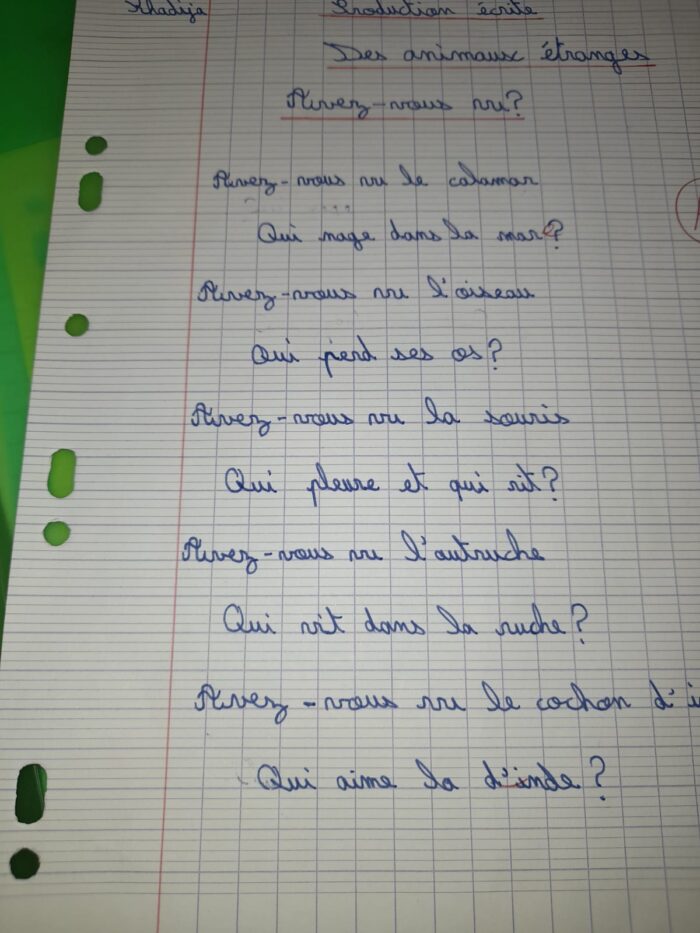 Khadija
Production écrite
Des animaux étranges
Avez-vous vu?
Avez-vous vu le calamar
Qui nage dans la mare?
Avez-vous vu l'oiseau
Qui perd ses os?
Avez-vous vu la souris
Qui pleure et qui rit?
Avez-vous vu l'autruche
Qui vit dans la ruche?
Avez-vous vu le cochon d'i
Qui aime la d'inde?